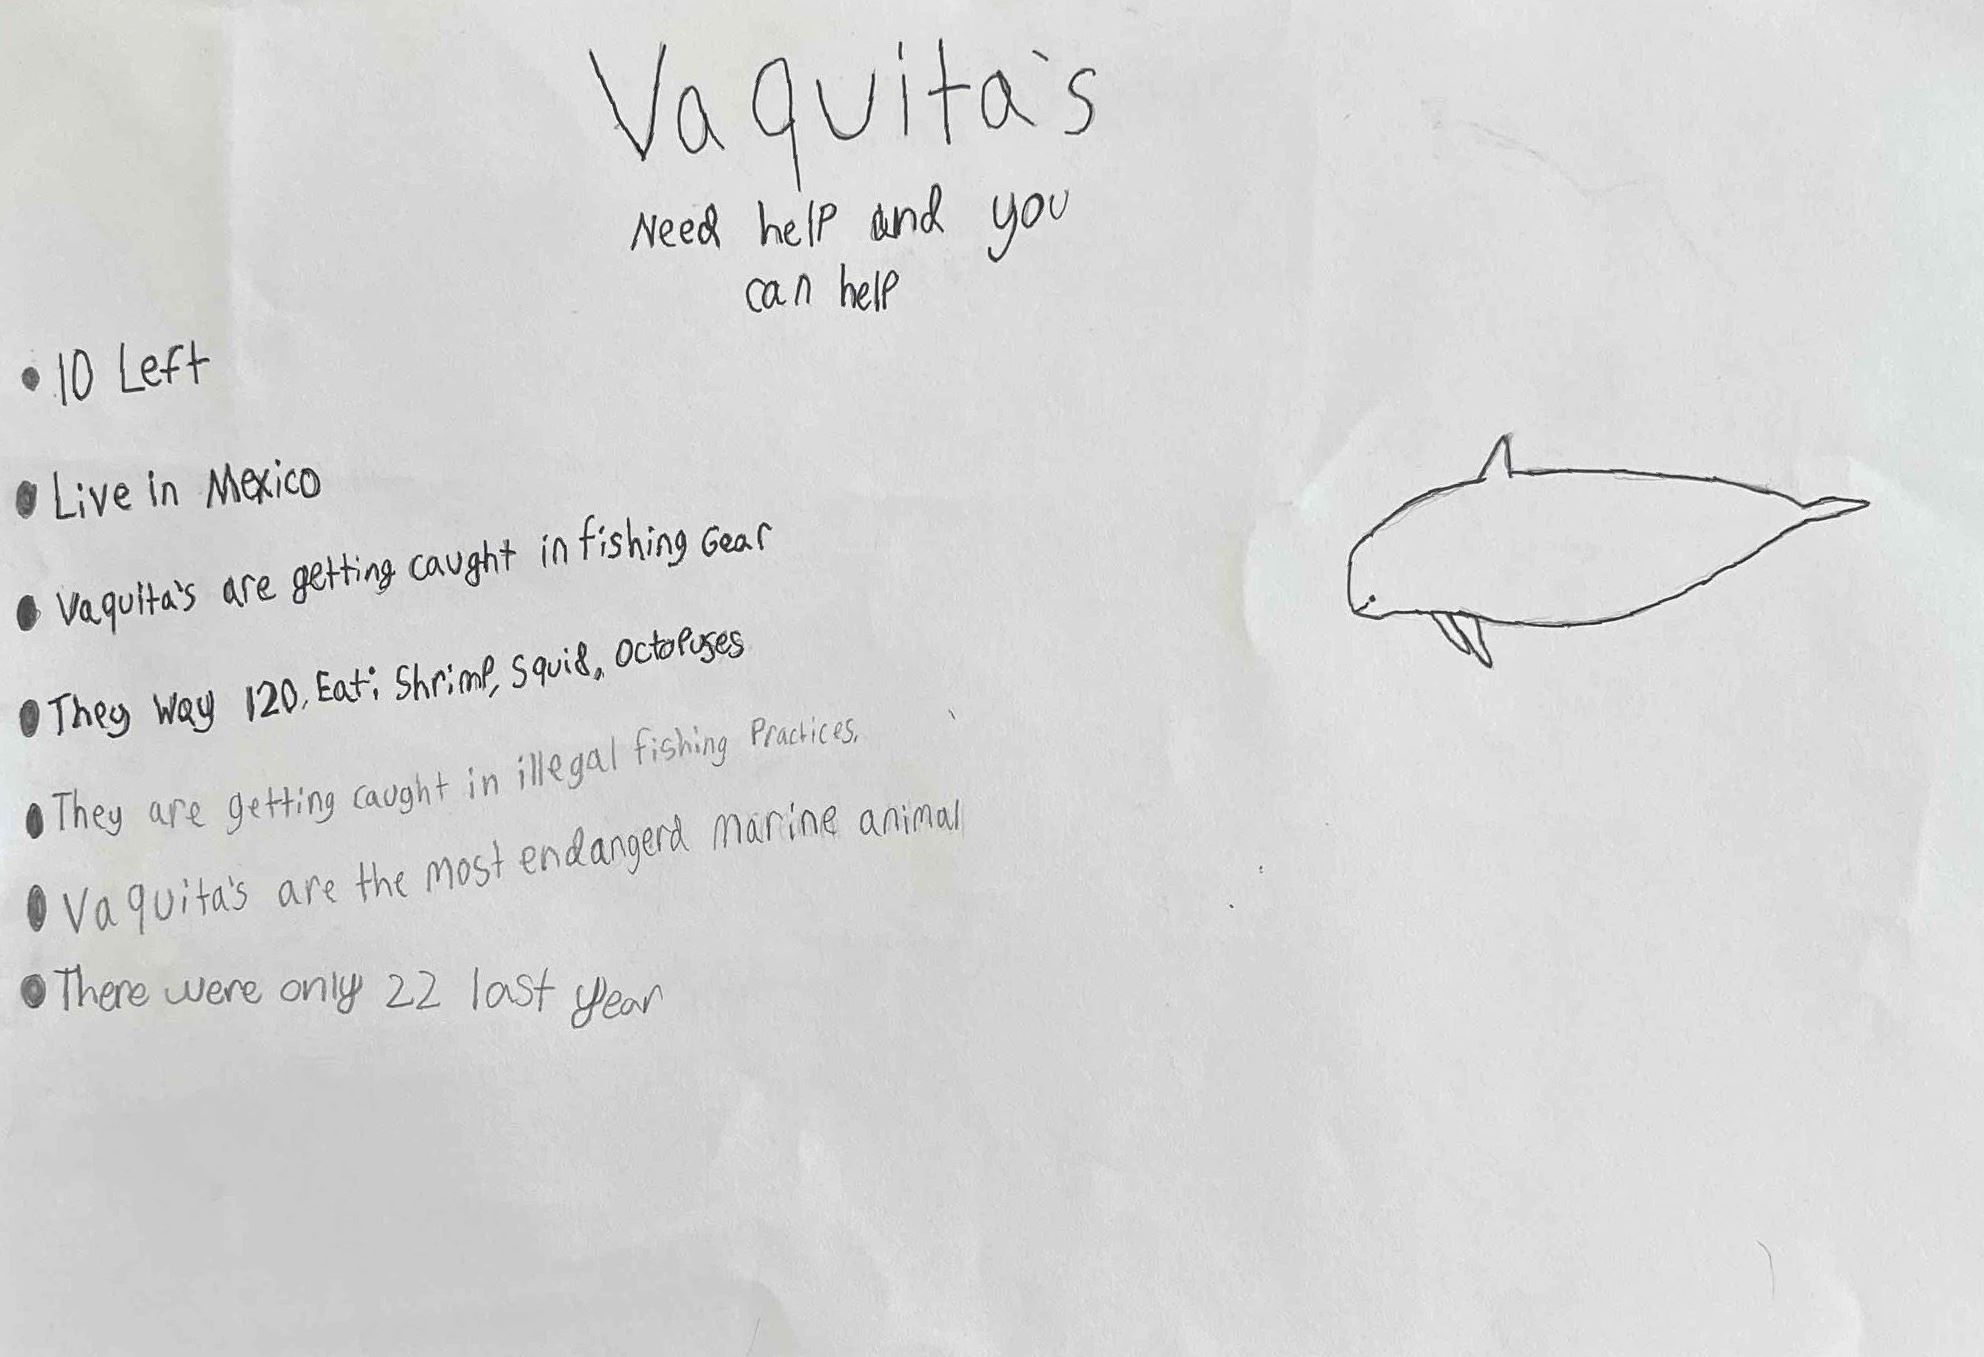 Vaquita's
Need help and you
can help
• 10 Left
• Live in Mexico
• Vaquita's are getting caught in fishing Gear
• They Way 120. Eat: Shrimp, Squid, Octopuses
• They are getting caught in illegal fishing Practices.
• Vaquita's are the most endangerd marine animal
• There were only 22 last year